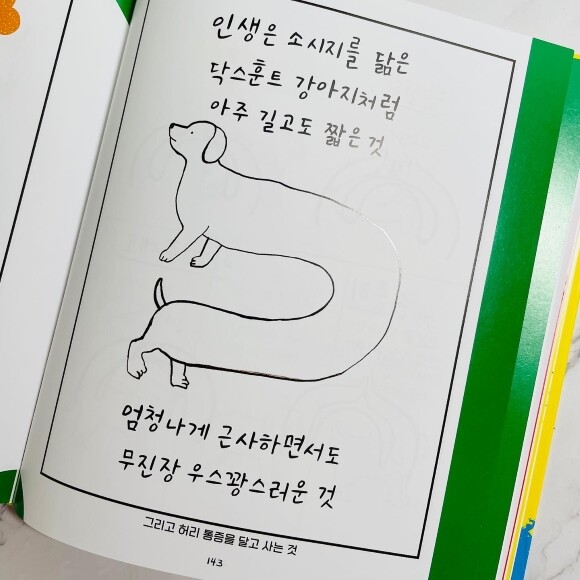 인생은 소시지를 닮은
닥스훈트 강아지처럼
아주 길고도 짧은 것
엄청나게 근사하면서도
무진장 우스꽝스러운 것
그리고 허리 통증을 달고 사는 것
143